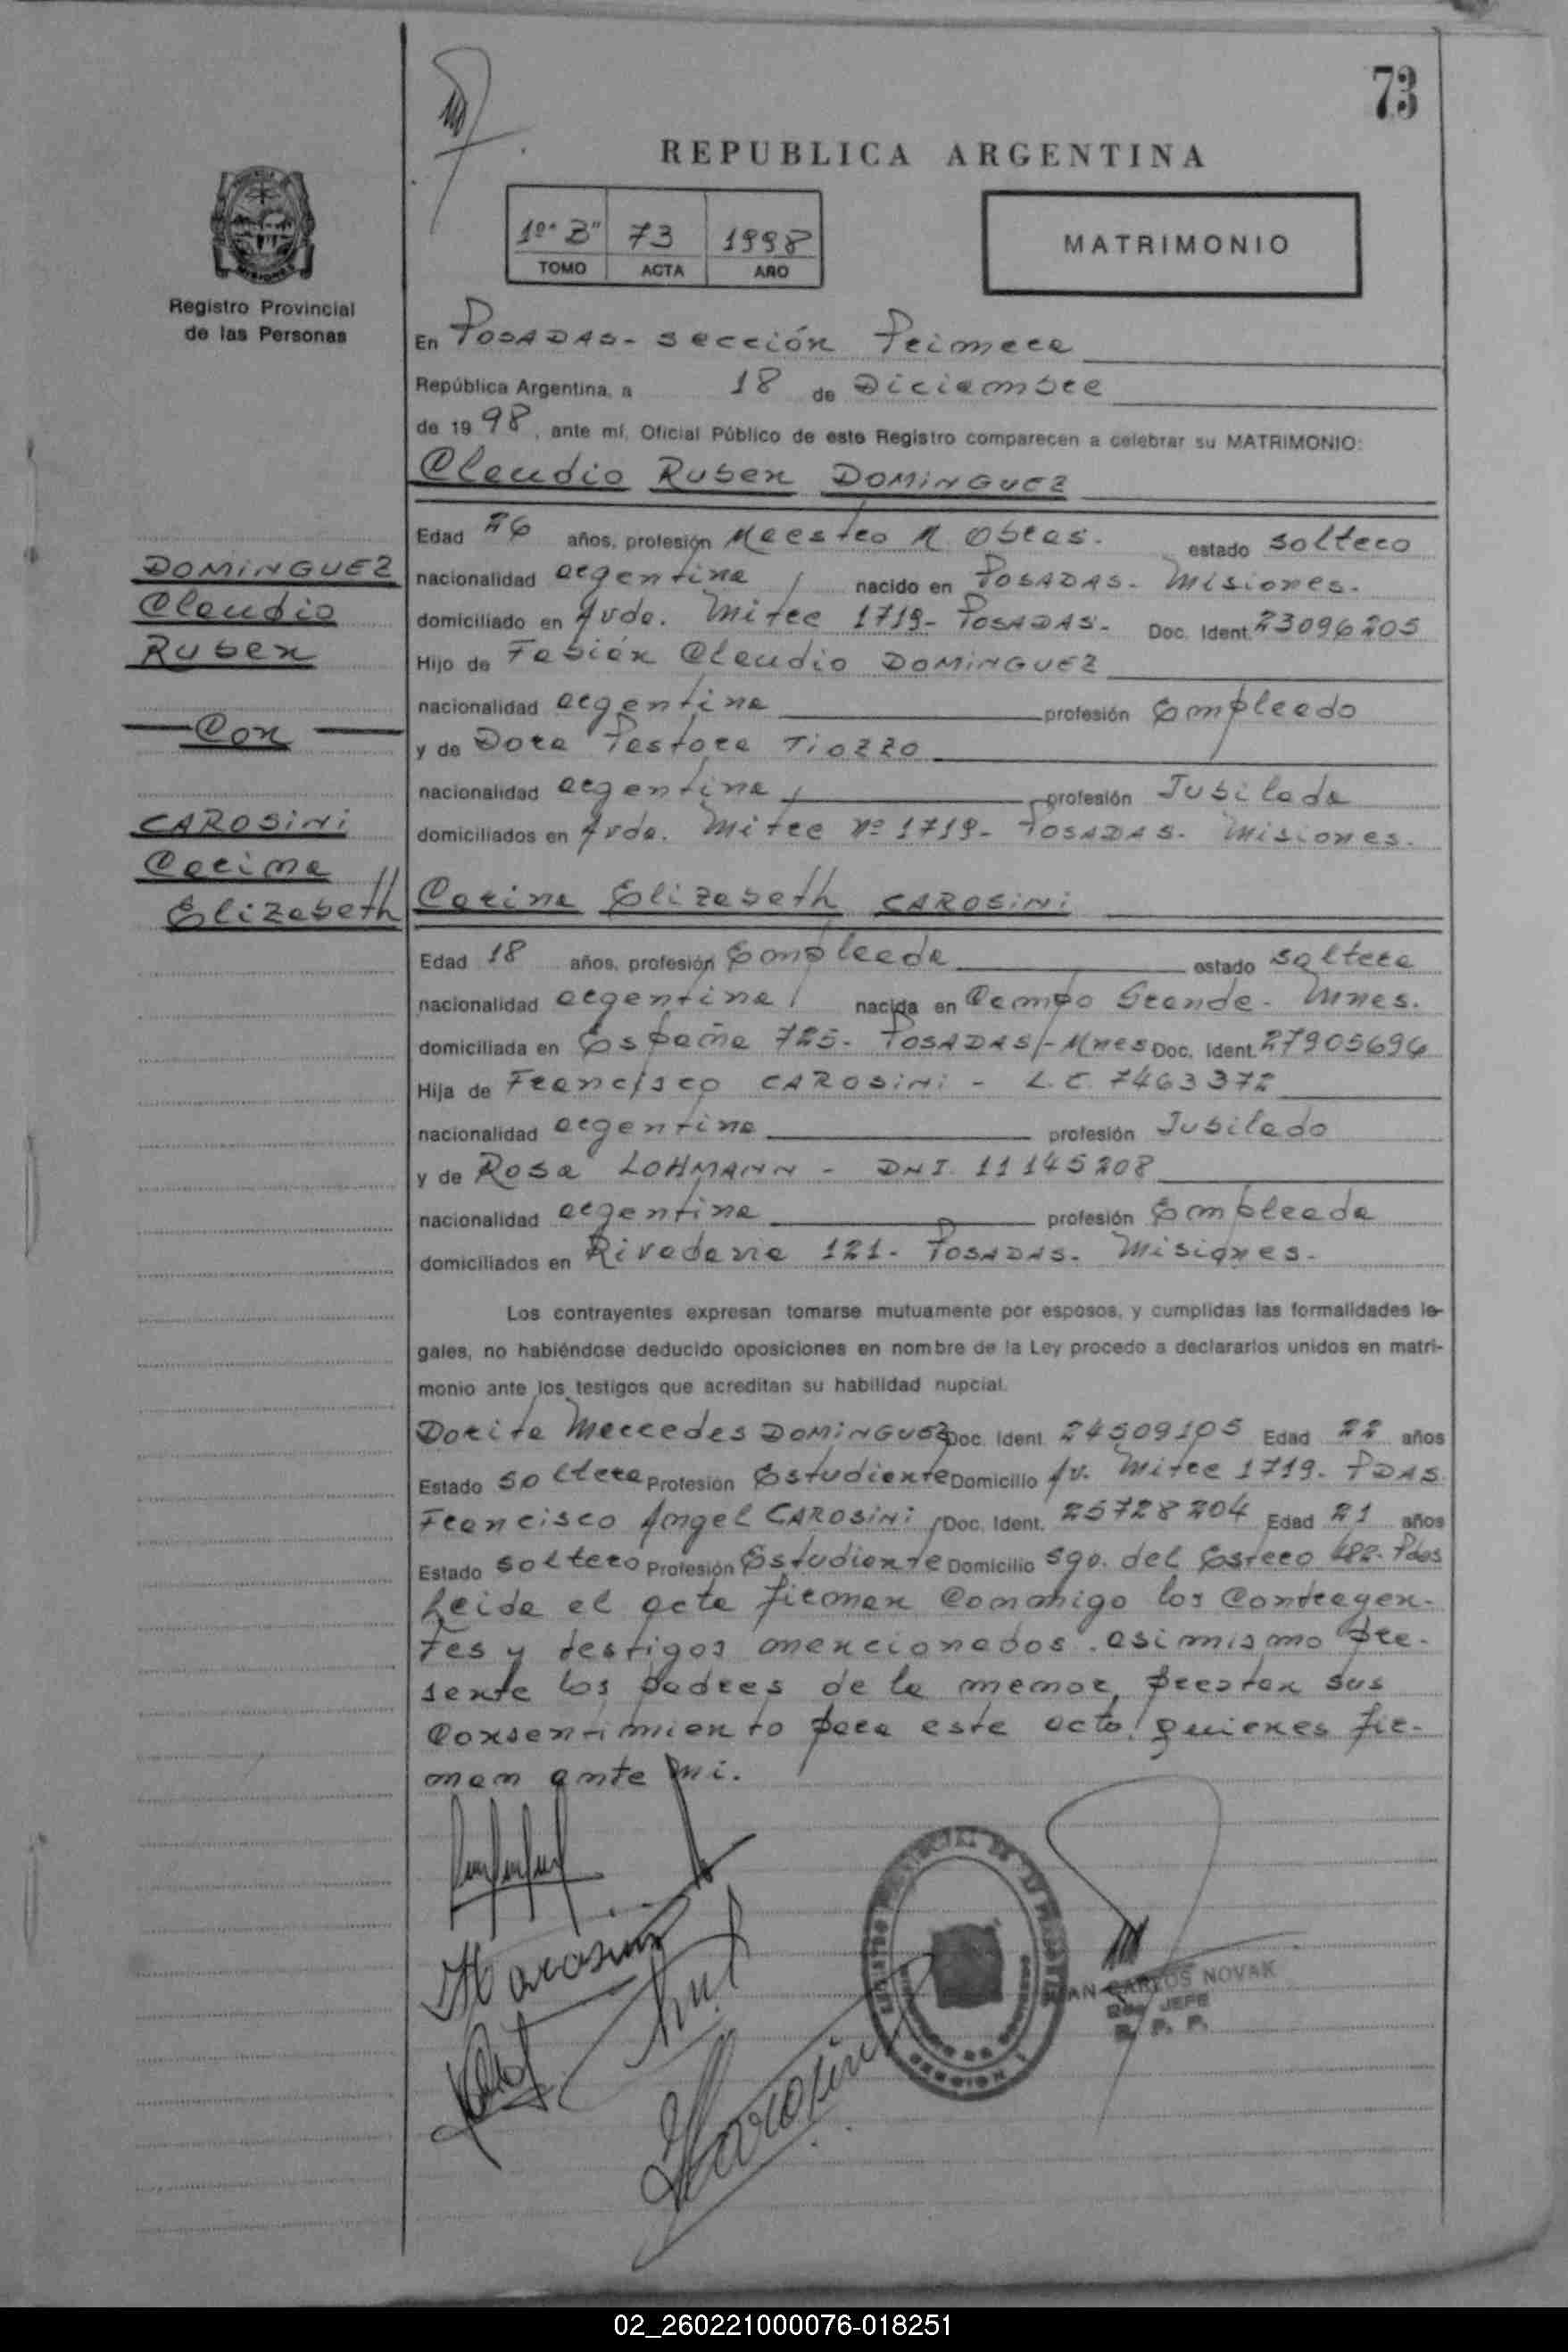 73
REPUBLICA ARGENTINA
1º "B" 73 1998
TOMO ACTA AÑO
MATRIMONIO
Registro Provincial
de las Personas
En POSADAS - Sección Primera
República Argentina, a 18 de Diciembre
de 1998, ante mí, Oficial Público de este Registro comparecen a celebrar su MATRIMONIO:
Claudio Ruben DOMINGUEZ
Edad 26 años, profesión Maestro M. Obras. estado soltero
DOMINGUEZ
Claudio
Ruben
nacionalidad argentina nacido en POSADAS - Misiones.
domiciliado en Avda. Mitre 1719 - POSADAS - Doc. Ident. 23096205
Hijo de Fabián Claudio DOMINGUEZ
nacionalidad argentina profesión Empleado
— Con —
y de Dora Pastora TIOZZO
nacionalidad argentina profesión Jubilada
domiciliados en Avda. Mitre Nº 1719 - POSADAS - Misiones.
CAROSINI
Carina
Elizabeth
Carina Elizabeth CAROSINI
Edad 18 años, profesión Empleada estado soltera
nacionalidad argentina nacida en Campo Grande - Mnes.
domiciliada en España 725 - POSADAS - Mnes Doc. Ident. 27905694
Hija de Francisco CAROSINI - L.E. 7463372
nacionalidad argentina profesión Jubilado
y de Rosa LOHMANN - DNI. 11145208
nacionalidad argentina profesión Empleada
domiciliados en Rivadavia 121 - POSADAS - Misiones.
Los contrayentes expresan tomarse mutuamente por esposos, y cumplidas las formalidades le-
gales, no habiéndose deducido oposiciones en nombre de la Ley procedo a declararlos unidos en matri-
monio ante los testigos que acreditan su habilidad nupcial.
Dorita Mercedes DOMINGUEZ Doc. Ident. 24509105 Edad 22 años
Estado soltera Profesión Estudiante Domicilio Av. Mitre 1719 - PDAS.
Francisco Angel CAROSINI Doc. Ident. 25728204 Edad 21 años
Estado soltero Profesión Estudiante Domicilio Sgo. del Estero 482 - Pdas
Leida el acta firman conmigo los Contrayen-
tes y testigos mencionados. asimismo pre-
sente los padres de la menor, prestan sus
Consentimiento para este acto, quienes fir-
man ante mi.
REGISTRO PROVINCIAL DE LAS PERSONAS
JUAN CARLOS NOVAK
JEFE
R. P. P.
02_260221000076-018251